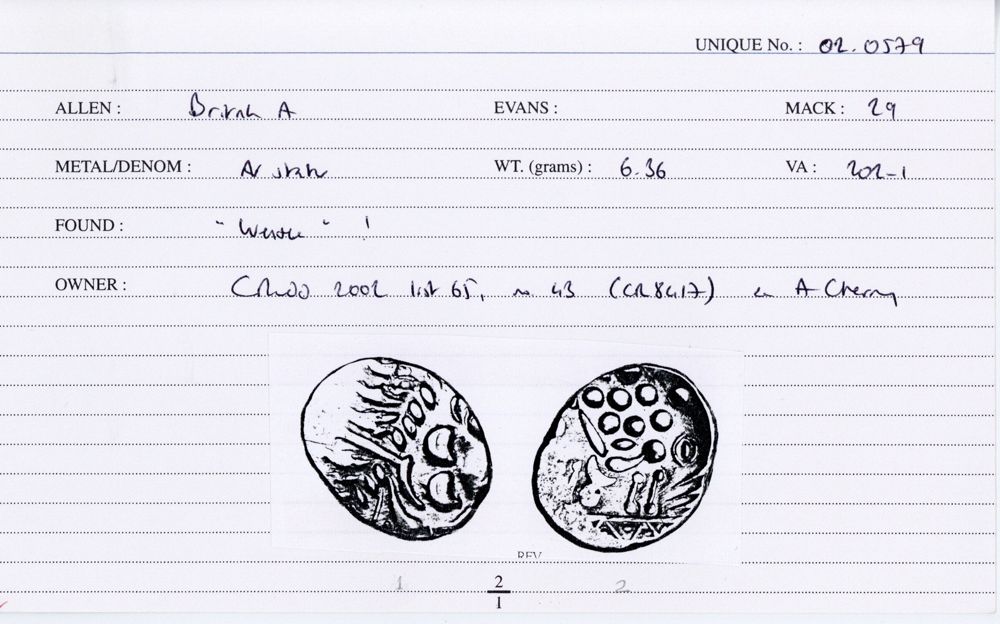 UNIQUE No. : 02.0579
ALLEN : British A EVANS : MACK : 29
METAL/DENOM : AV stater WT. (grams) : 6.36 VA : 202-1
FOUND : " " !
OWNER : 2002 list 65, no 43 (CR8417) A Cherry
REV
1 2/1 2